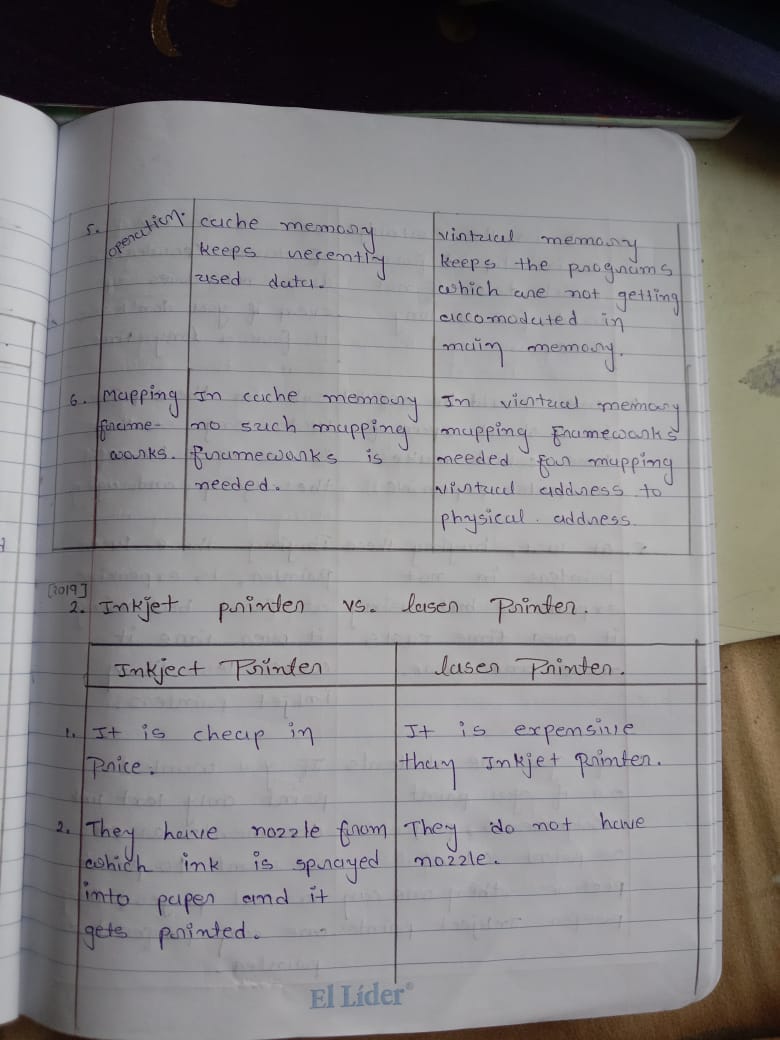 5. operation.
cache memory
keeps recently
used data.
virtual memory
keeps the programs
which are not getting
accomodated in
main memory.
6. Mapping
frame-
works.
In cache memory
no such mapping
frameworks is
needed.
In virtual memory
mapping frameworks
needed for mapping
virtual address to
physical address
[2019]
2. Inkjet printer vs. laser Printer.
Inkject Printer
laser Printer.
1. It is cheap in
Price.
It is expensive
than Inkjet printer.
2. They have nozzle from
which ink is sprayed
into paper and it
gets printed.
They do not have
nozzle.
El Líder